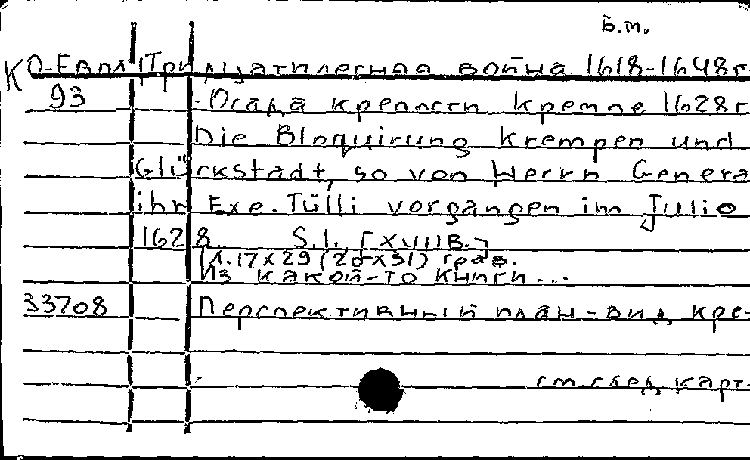 Б.м.
КО-Европ. Тридцатилетняя война 1618-1648г
93 -Осада крепости Кремпе 1628г
Die Bloquirung Krempen und
Glückstadt, so von Herrn Genera
ihr Exe. Tülli vorgangen im Julio
1628 S.l., [XVIIв.]
1л. 17x29 (20x31) грав.
Из какой-то книги...
33708 Перспективный план-вид кре-
см. след. карт.